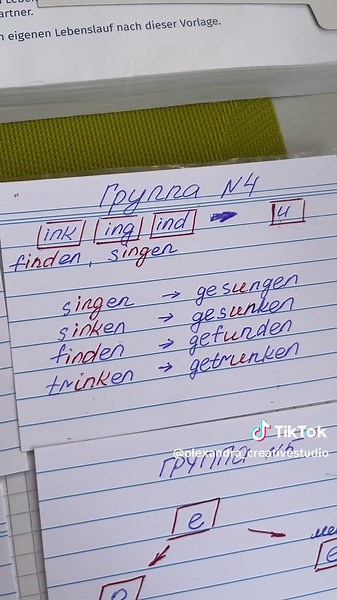 artner.
n eigenen Lebenslauf nach dieser Vorlage.
Группа N4
ink ing ind → u
finden, singen
singen → gesungen
sinken → gesunken
finden → gefunden
trinken → getrunken
TikTok
@olexandra_creativestudio
группа
e